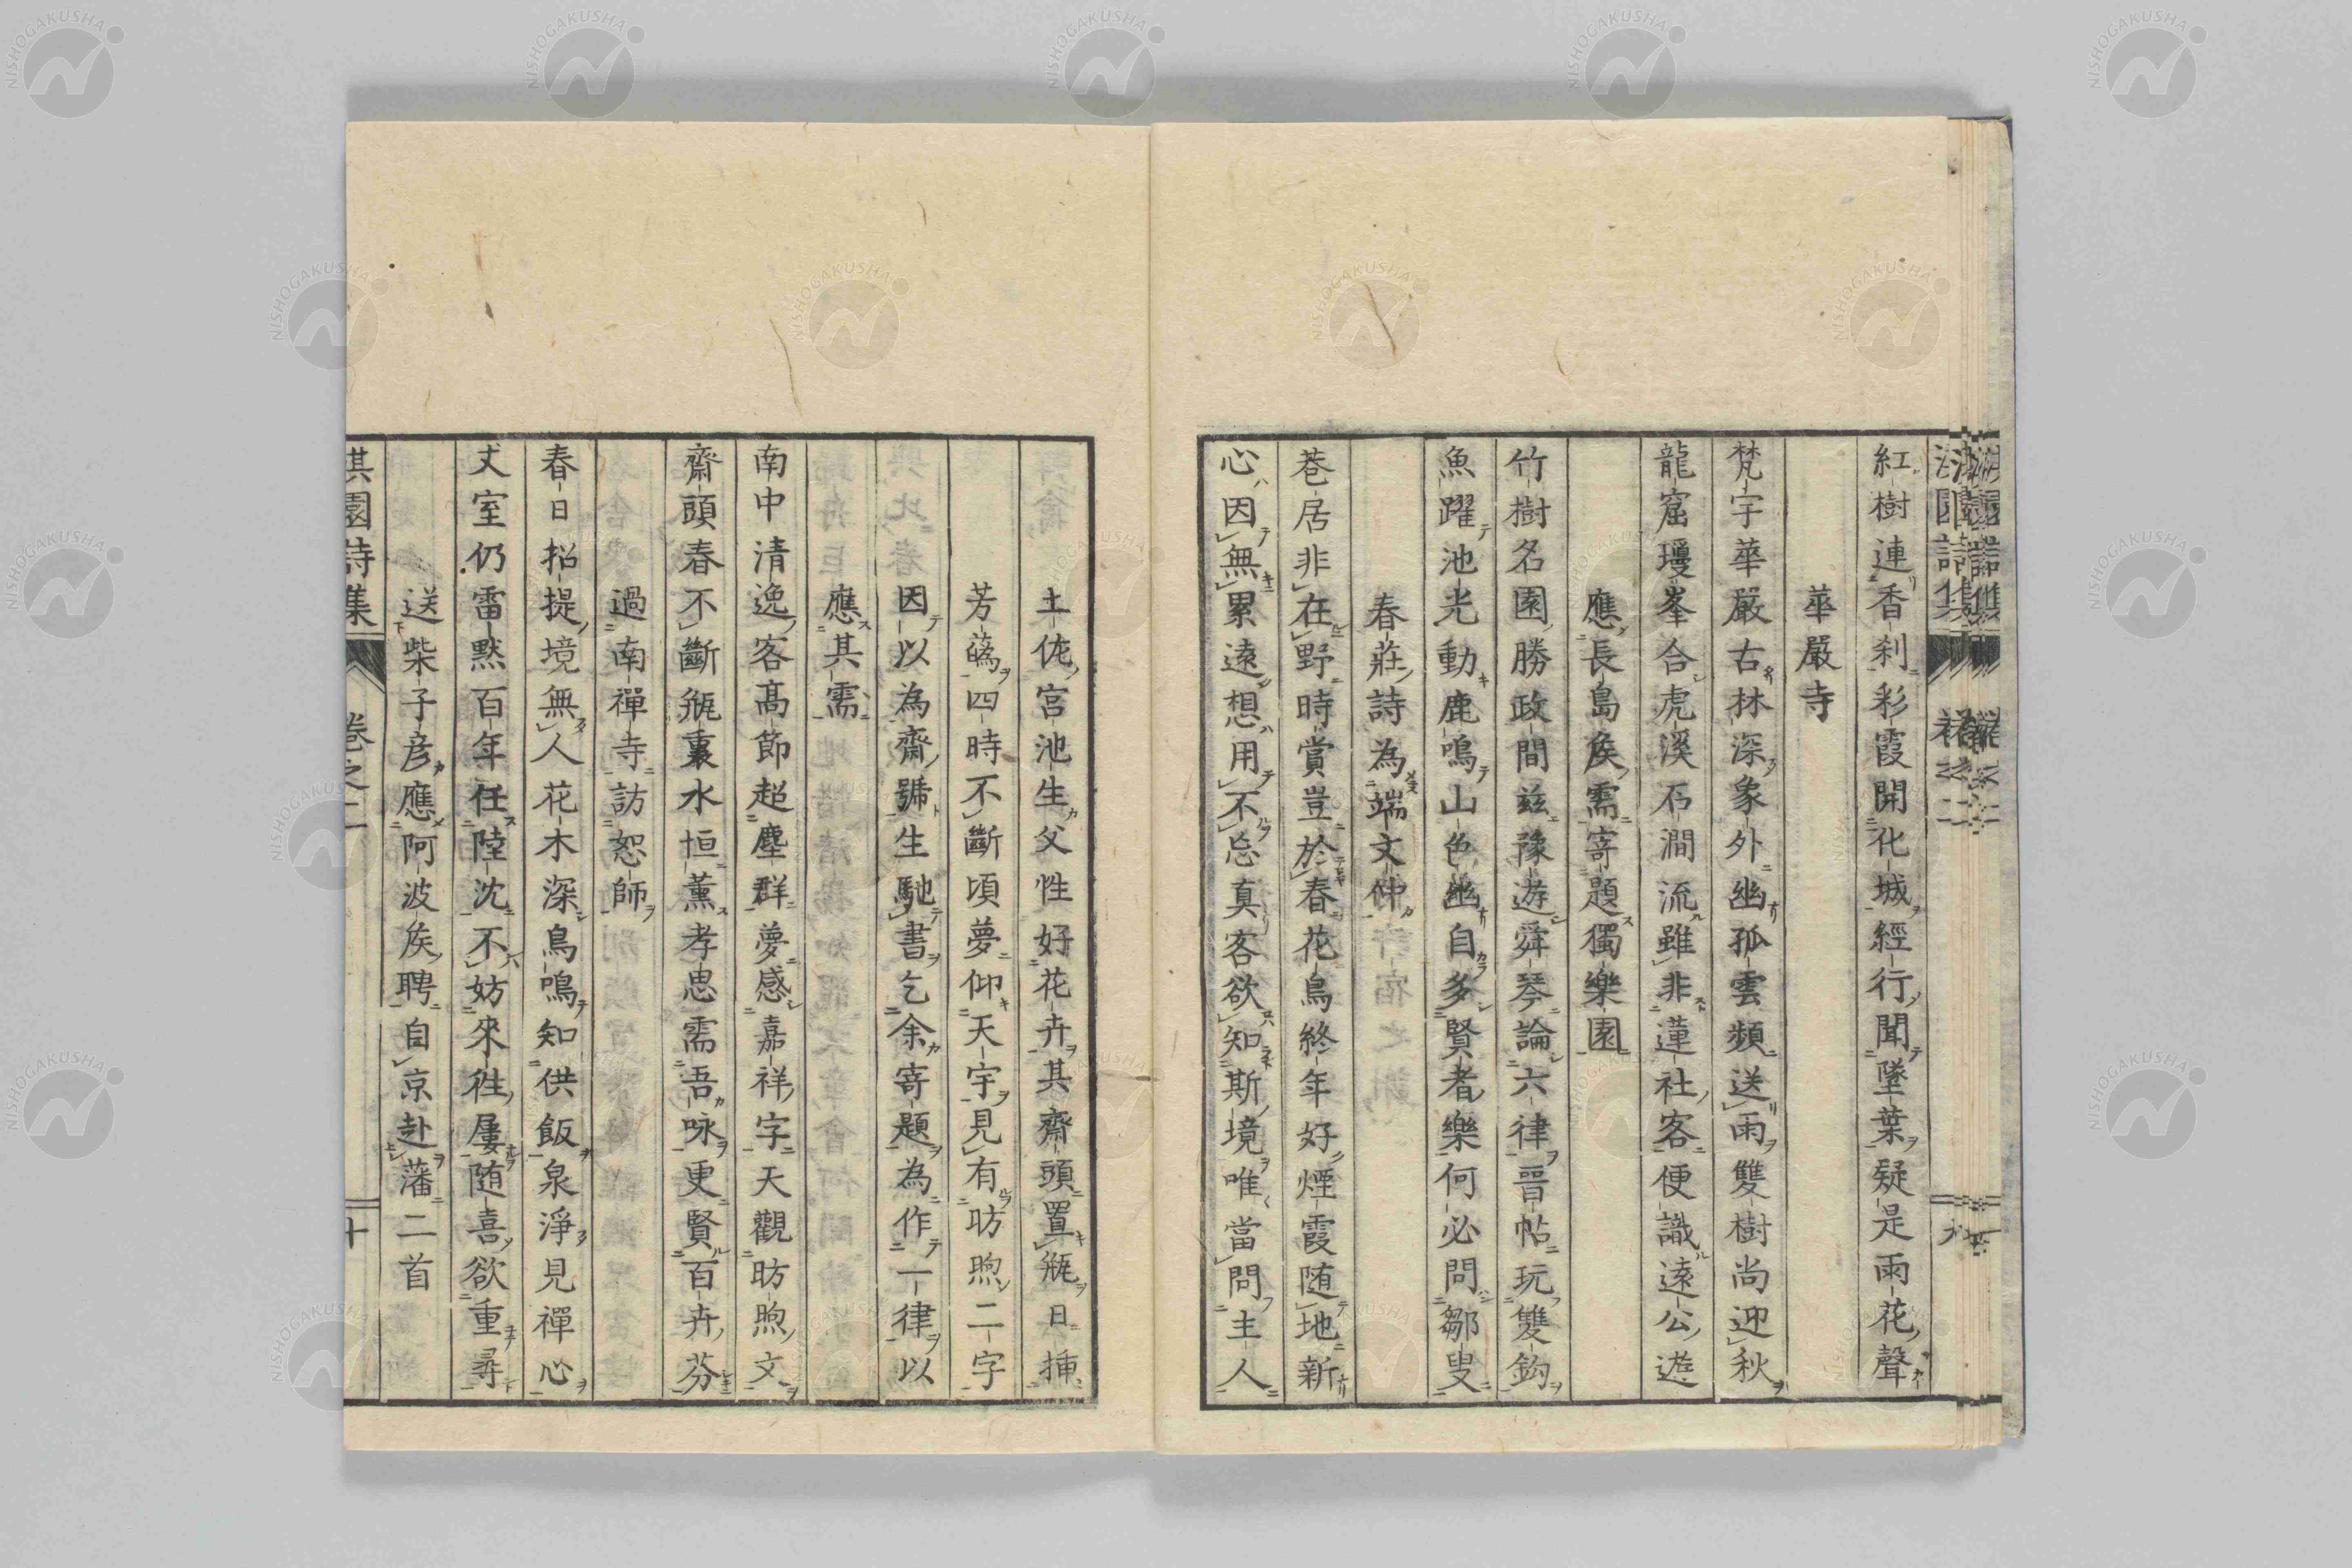 紅樹連香刹彩霞開化城經行聞墜葉疑是雨花聲
華嚴寺
梵宇華嚴古林深象外幽孤雲頻送雨雙樹尚迎秋
龍窟瓊峯合虎溪石澗流雖非蓮社客便識遠公遊
應長島矦需寄題獨樂園
竹樹名園勝政間茲豫遊舜琴論六律晉帖玩雙鈎
魚躍池光動鹿鳴山色幽自多賢者樂何必問鄒叟
春莊詩為端文仲
巷居非在野時賞豈於春花鳥終年好煙霞随地新
心因無累遠想用不忘真客欲知斯境唯當問主人
土佐宮池生父性好花卉其齋頭置瓶日挿
芳蘤四時不斷頃夢仰天宇見有昉煦二字
因以為齋號生馳書乞余寄題為作一律以
應其需
南中清逸客高節超塵群夢感嘉祥字天觀昉煦文
齋頭春不斷瓶裏水恒薰孝思需吾咏更賢百卉芬
過南禪寺訪恕師
春日招提境無人花木深鳥鳴知供飯泉淨見禪心
丈室仍雷黙百年任陸沈不妨來徃屢随喜欲重尋
送柴子彦應阿波矦聘自京赴藩二首
淇園詩集 卷之二 十